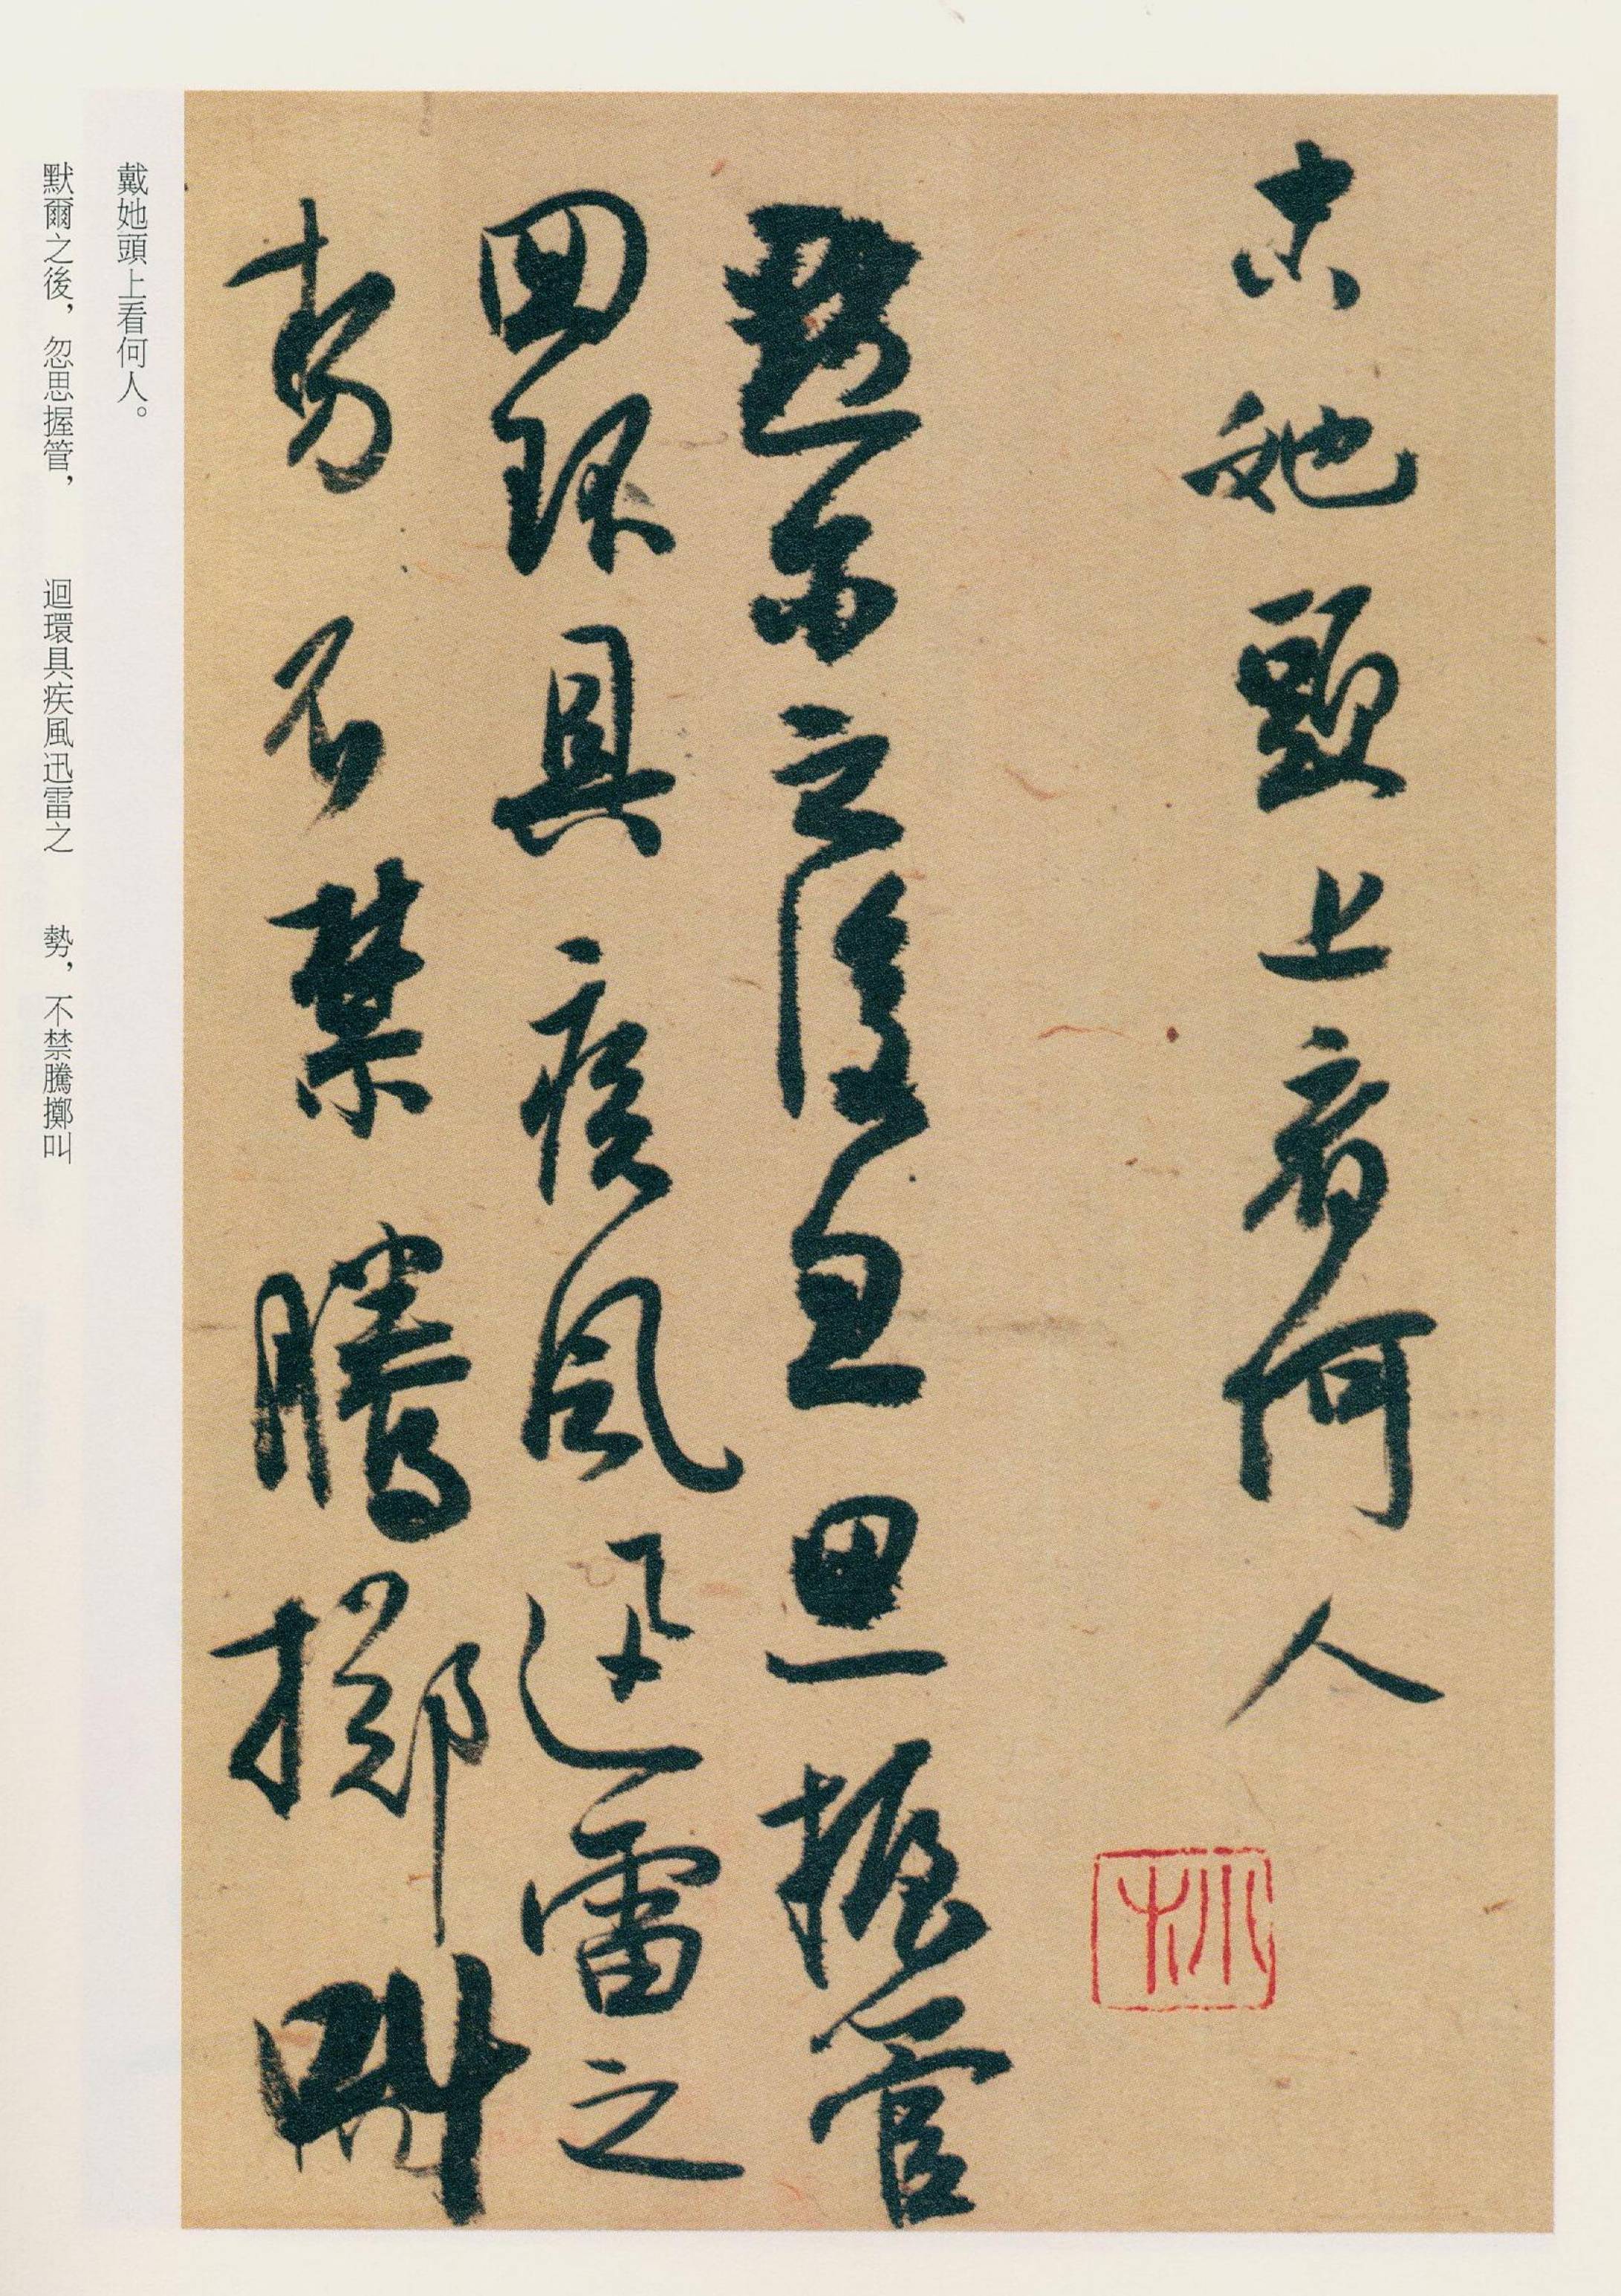 她頭上看何人
默爾之後忽思握管
迴環具疾風迅雷之
勢不禁騰擲叫
戴她頭上看何人。
默爾之後，忽思握管， 迴環具疾風迅雷之 勢，不禁騰擲叫